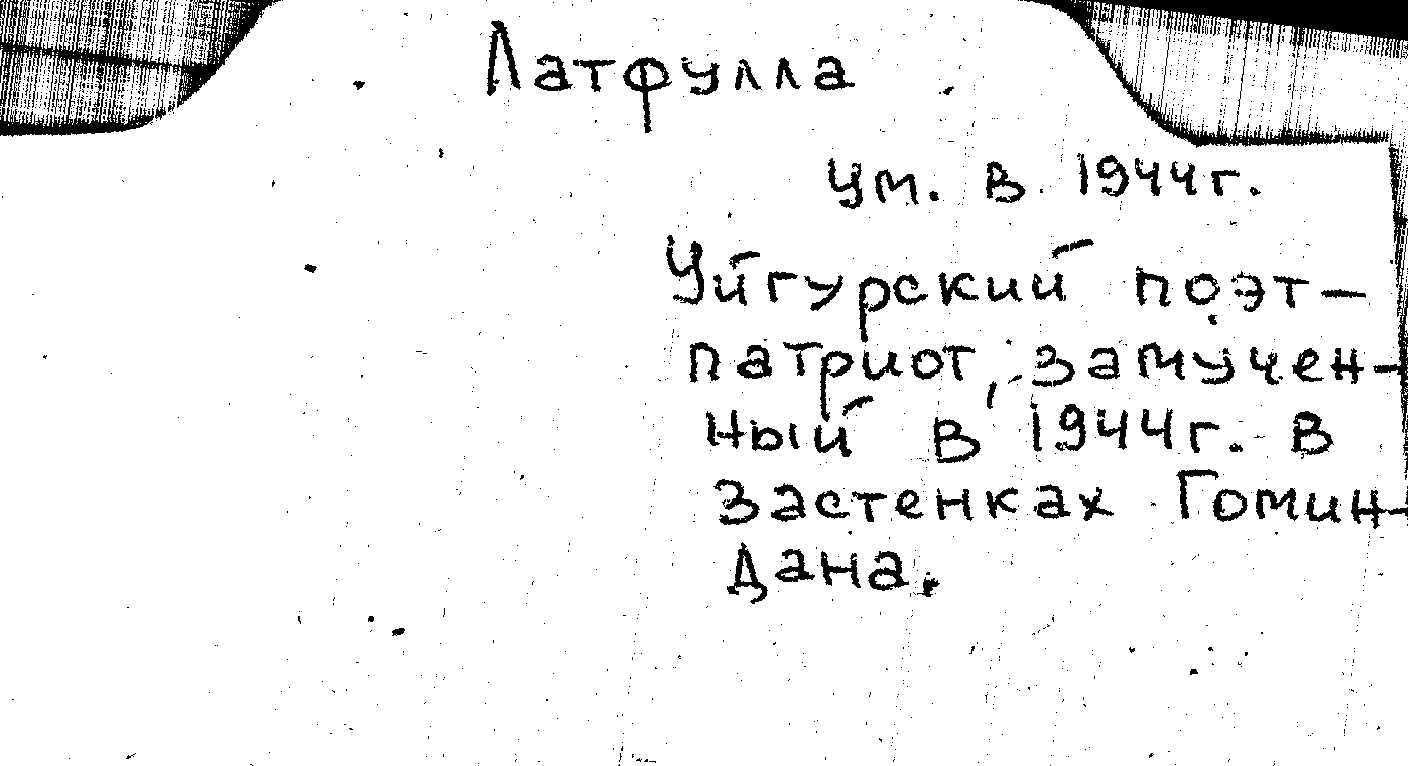 Латфулла
ум. в 1944г.
Уйгурский поэт-
патриот, замучен-
ный в 1944г. в
застенках Гомин-
дана.